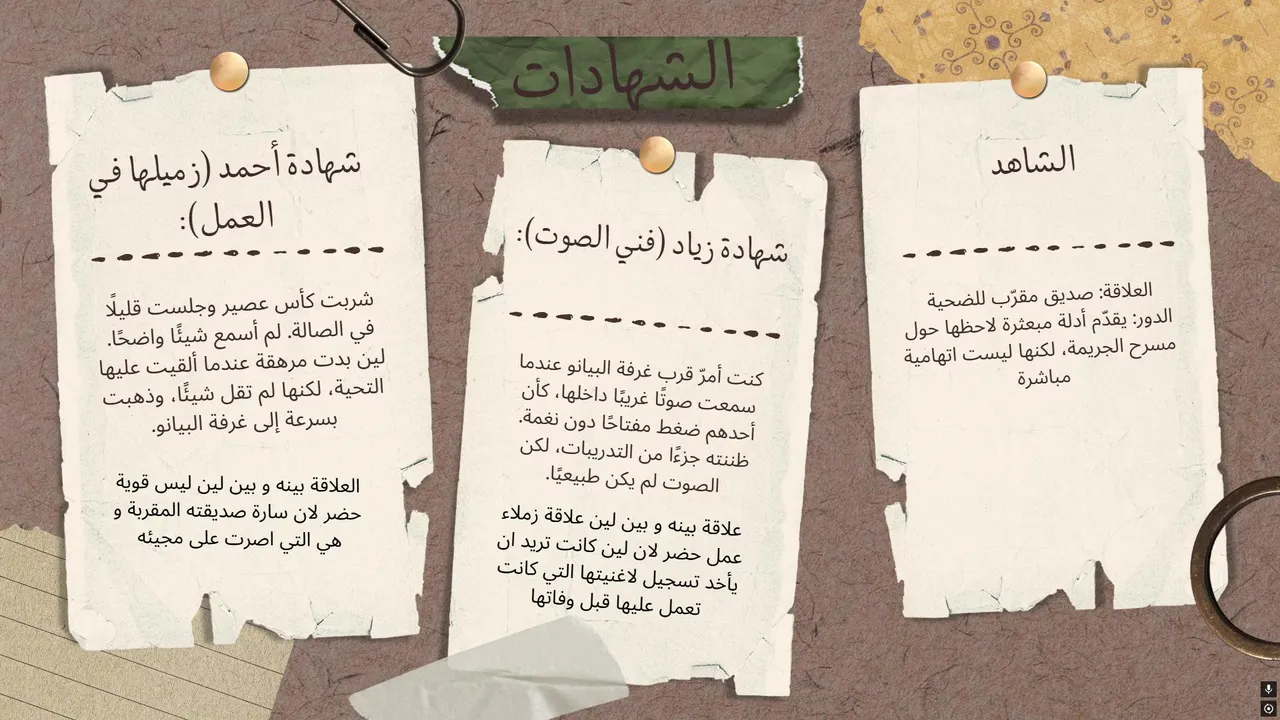 الشهادات
الشاهد
العلاقة: صديق مقرّب للضحية
الدور: يقدّم أدلة مبعثرة لاحظها حول
مسرح الجريمة، لكنها ليست اتهامية
مباشرة
شهادة زياد (فني الصوت):
كنت أمرّ قرب غرفة البيانو عندما
سمعت صوتًا غريبًا داخلها، كأن
أحدهم ضغط مفتاحًا دون نغمة.
ظننته جزءًا من التدريبات، لكن
الصوت لم يكن طبيعيًا.
علاقة بينه و بين لين علاقة زملاء
عمل حضر لان لين كانت تريد ان
يأخد تسجيل لاغنيتها التي كانت
تعمل عليها قبل وفاتها
شهادة أحمد (زميلها في
العمل):
شربت كأس عصير وجلست قليلًا
في الصالة. لم أسمع شيئًا واضحًا.
لين بدت مرهقة عندما ألقيت عليها
التحية، لكنها لم تقل شيئًا، وذهبت
بسرعة إلى غرفة البيانو.
العلاقة بينه و بين لين ليس قوية
حضر لان سارة صديقته المقربة و
هي التي اصرت على مجيئه